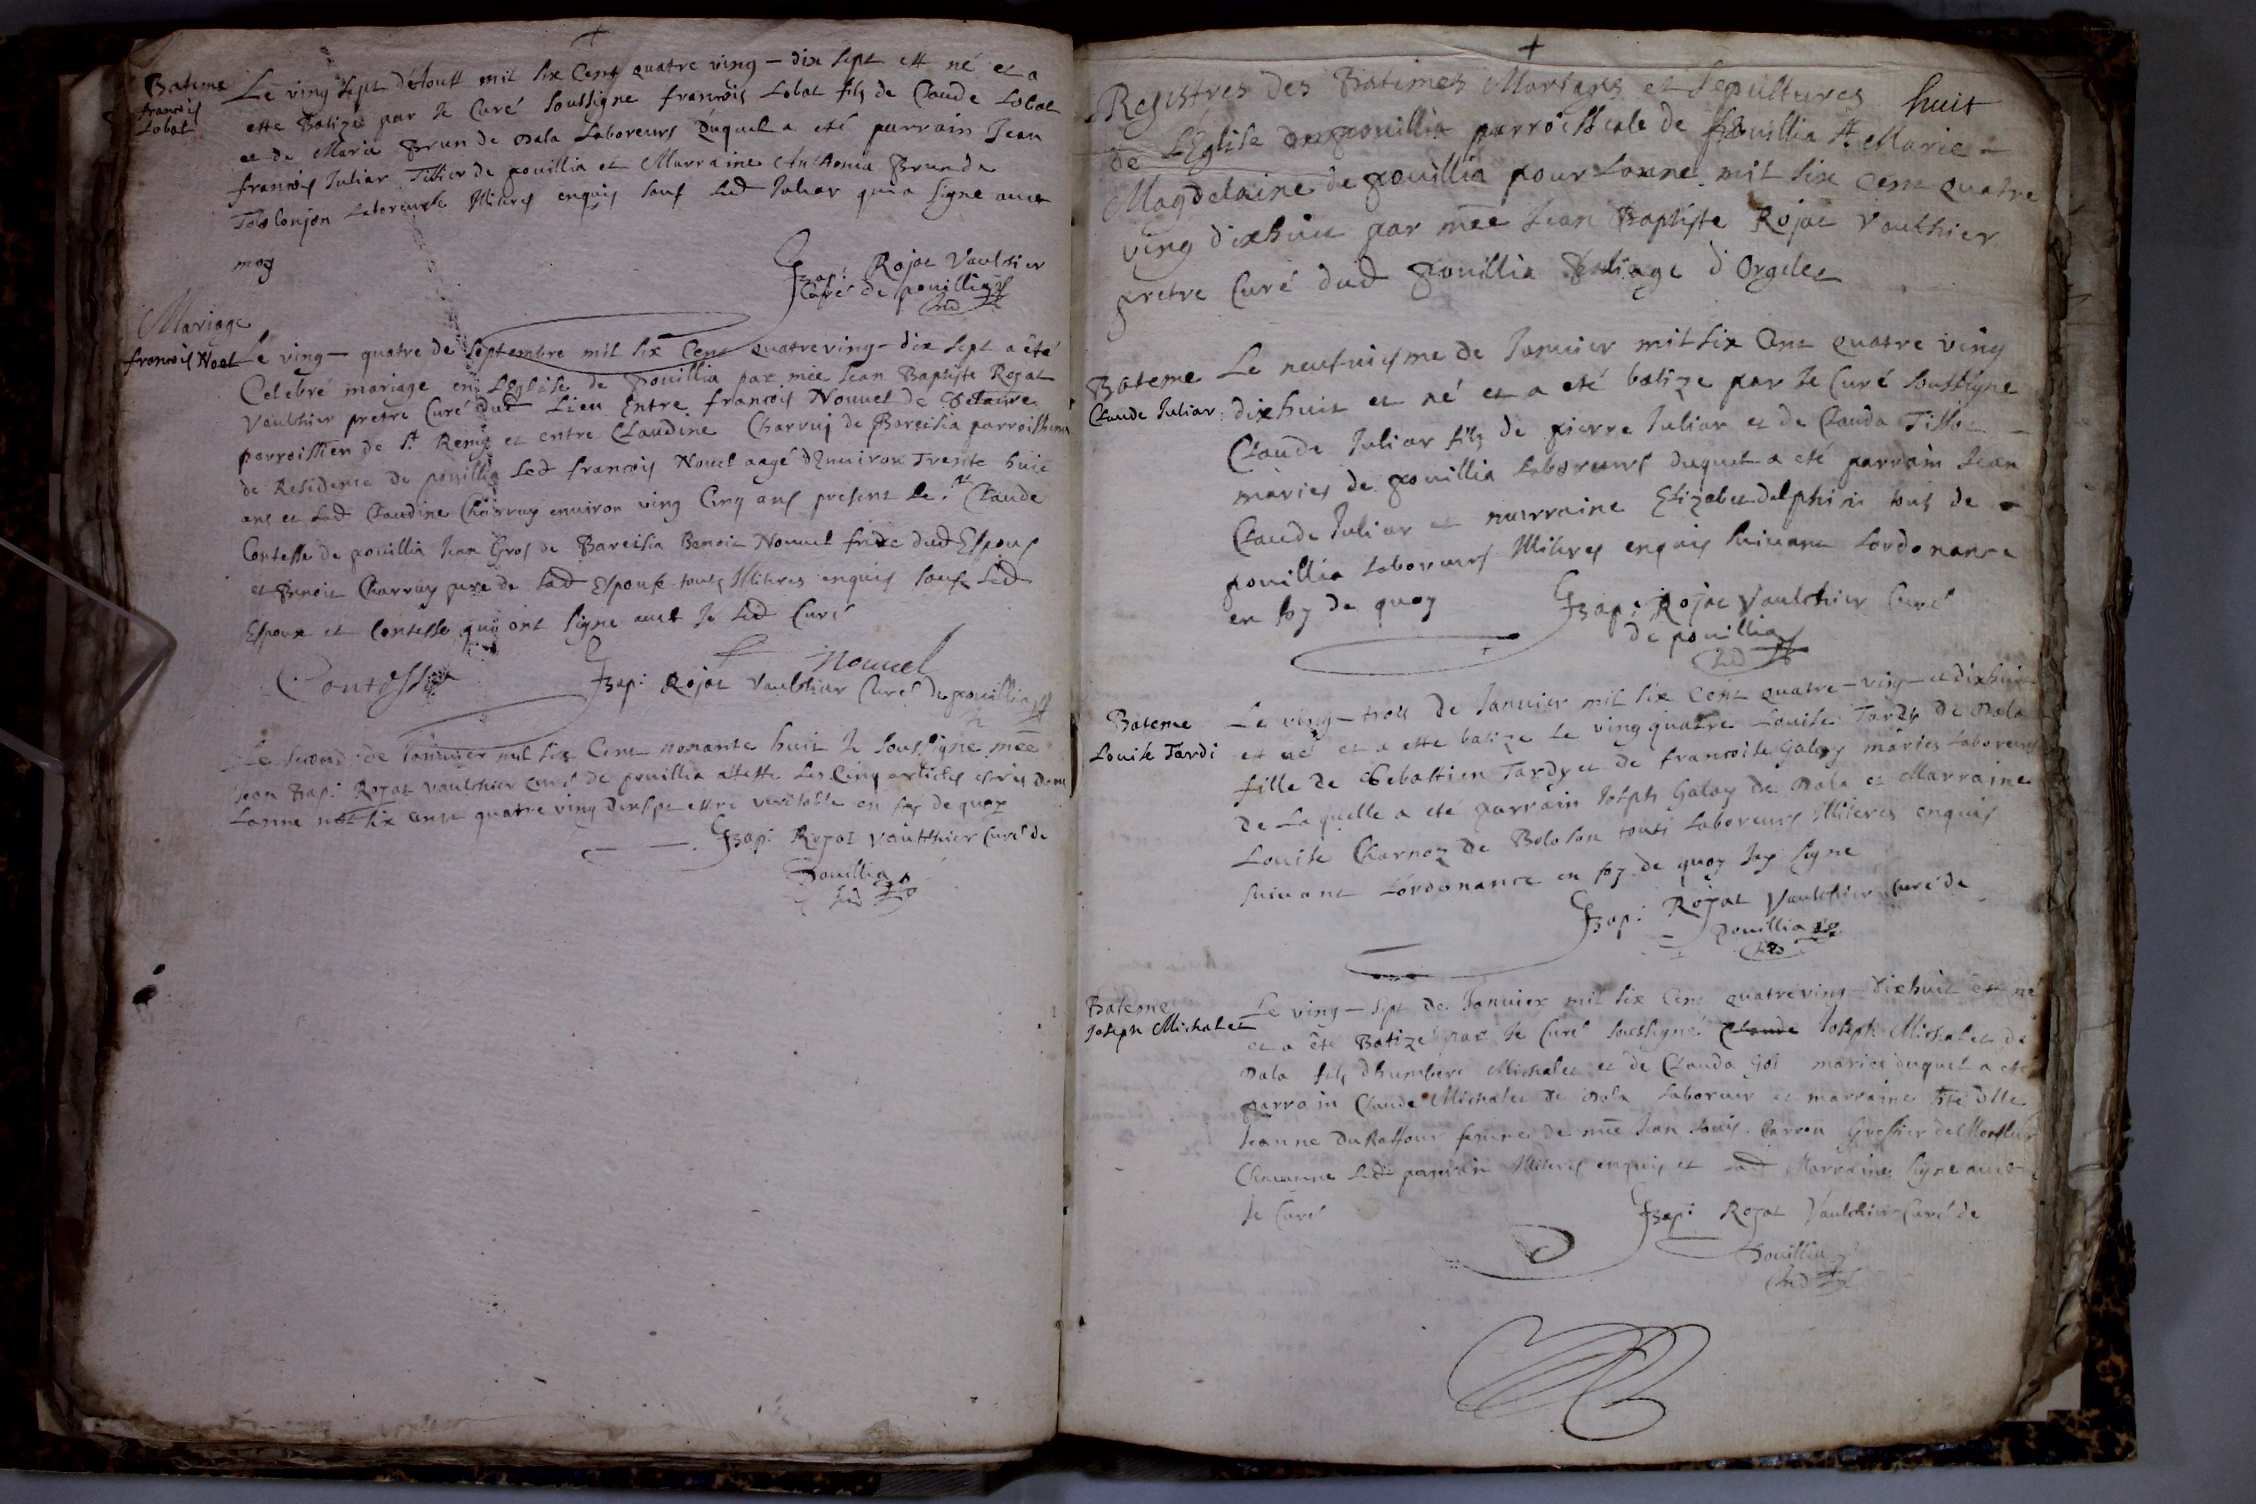 +
Bateme
francois
Lobat
Le ving sept d'étoust mil six Cent quatre ving - dix sept est né et a
etté Batizé par Je Curé soussigne francois Lobat fils de Claude Lobat
et de Maria Brun de dala Laboreurs duquel a eté parrain Jean
francois Juliar Tissier de pouillia et Marraine Anthonia Brun de
Tolonjon Laboreurs Illiteres enquis sauf Led Juliar qui a signe avec
moy
Jbap: Rojat Vaulchier
Curé de pouillia
Mariage
francois Noel
Le ving - quatre de septembre mil six Cent quatre ving - dix sept a été
Celebré mariage en L'Eglise de Pouillia par mre Jean Baptiste Rojat
Vaulchier pretre Curé dud Lieu Entre francois Nouuel de
parroissien de St Remy et entre Claudine Charruy de Bareisia parroissiene
de Residence de pouillia Led francois Nouel aagé d'Environ Trente huit
ans et Lad Claudine Charruy environ ving Cinq ans present Le Sr Claude
Contesse de pouillia Jean Gros de Bareisia Benoit Nouuel frere dud Espous
et Benoit Charruy pere de Lad Espouse touts Illiteres enquis sauf Led
Espoux et Contesse qui ont signe avec Je Led Curé
Contesse
Nouuel
Jbap: Rojat Vaulchier Curé de pouillia
Le second de Janvier mil six Cent nonante huit Je soussigne mre
Jean Bap: Rojat Vaulchier Curé de pouillia atteste Les Cinq articles escris dans
Lanne mil six Cent quatre ving dixsept estre veritable en foy de quoy
Jbap: Rojat Vaulchier Curé de
Pouillia
+
Registres des Batimes Mariages et Sepultures huit
de L'Eglise parroissiale de Pouillia Ste Marie -
Magdelaine de pouillia pour Lanne mil six cent quatre
ving dixhuit par mre Jean Baptiste Rojat Vaulthier
pretre Curé dud Pouillia Balliage d'Orgelet
Bateme
Claude Juliar
Le neufviesme de Janvier mil six Cent quatre ving
dixhuit et né et a eté batize par Je Curé soussigne
Claude Juliar fils de pierre Juliar et de Clauda Tissot
mariés de pouillia Laboreurs duquel a eté parrain Jean
Claude Juliar et marraine Elizabet dalphin tous de -
pouillia Laboreurs Illiteres enquis suivant Lordonance
en foy de quoy
Jbap: Rojat Vaulchier Curé
de pouillia
Bateme
Louise Tardi
Le ving - trois de Janvier mil six Cent quatre - ving - et dixhuit
est né et a ette batize le ving quatre Louise Tardy de Dala
fille de Sebastien Tardy et de francoise Galoy mariés Laboreurs
de Laquelle a eté parrain Joseph Galoy de Dala et Marraine
Louise Charnoz de Boloson touts Laboreurs Illiteres enquis
suivant Lordonance en foy de quoy Jay signe
Jbap: Rojat Vaulchier Curé de
Pouillia
Bateme
Joseph Michalet
Le ving - sept de Janvier mil six Cent quatre ving - dixhuit est né
et a été Batizé par Je Curé soussigné Claude Joseph Michalet de
Dala fils dhumbert Michalet et de Clauda Goi mariés duquel a eté
parrain Claude Michalet de Dala Laboreur et marraine dlle
Jeanne DuRaffour femme de mre Jean Louis Greffier de
Led parrain Illiteres enquis et Lad Marraine signe avec
Je Curé
Jbap: Rojat Vaulchier Curé de
Pouillia